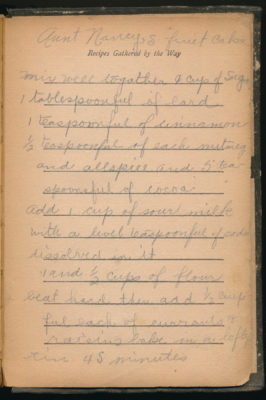 Aunt Nancy's fruit cake
Recipes Gathered by the Way
mix well together 1 cup of Sugar
1 tablespoonful of lard
1 teaspoonful of cinnamon
½ teaspoonful of each nutmeg
and allspice and 5 tea
spoonsful of cocoa
add 1 cup of sour milk
with a level teaspoonful of soda
dissolved in it
1 and ½ cups of flour
beat hard then add ½ cup
ful each of currants &
raisins bake in a
tin 45 minutes